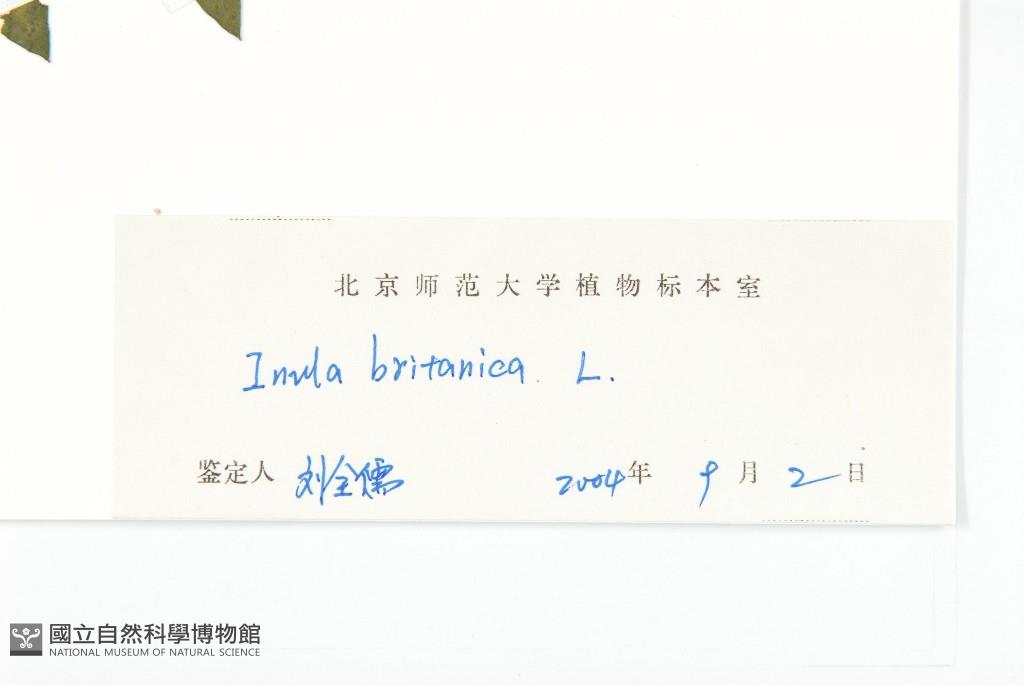 北京师范大学植物标本室
Inula britanica. L.
鉴定人 刘全儒 2004年 9月 2日
國立自然科學博物館
NATIONAL MUSEUM OF NATURAL SCIENCE